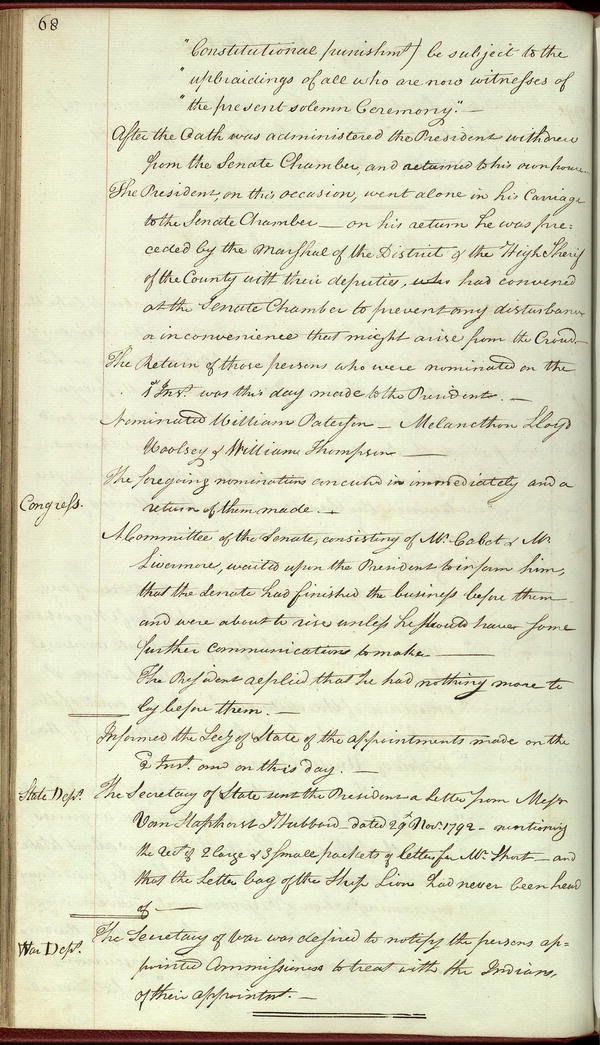 68
"Constitutional punishmt) be subject to the
"upbraidings of all who are now witnesses of
"the present solemn Ceremony." —
After the Oath was administered the President withdrew
from the Senate Chamber, and returned to his own house.
The President, on this occasion, went alone in his Carriage
to the Senate Chamber — on his return he was pre=
ceded by the Marshal of the District & the High Sherif
of the County with their deputies, who had convened
at the Senate Chamber to prevent any disturbance
or inconvenience that might arise from the Crowd. —
The Return of those persons who were nominated on the
1st Inst. was this day made to the President. —
Nominated William Paterson — Melancthon Lloyd
Woolsey & William Thompson —
The foregoing nominations concured in immediately and a
Congress.
return of them made. —
A Committee of the Senate, consisting of Mr. Cabot & Mr.
Livermore, waited upon the President to inform him,
that the Senate had finished the business before them
and were about to rise unless he should have some
further communications to make —
The President replied that he had nothing more to
lay before them. —
Informed the Secy. of State of the appointments made on the
2d Inst. and on this day. —
State Dept.
The Secretary of State sent the President a Letter from Messrs
Van Staphorst & Hubbard — dated 29th Novr. 1792 — mentioning
the rect. of 2 large & 3 small packets of letters for Mr. Short — and
that the Letter bag of the Ship Lion had never been heard
of —
War Dept.
The Secretary of War was desired to notify the persons ap=
pointed Commissioners to treat with the Indians,
of their appointmt. —